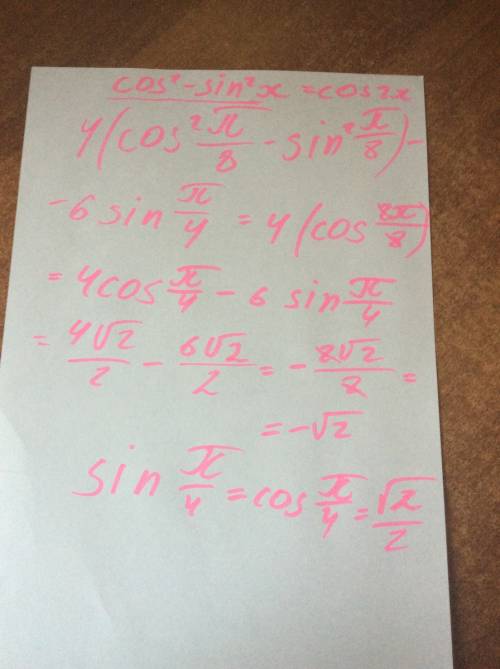 cos² - sin²x = cos2x
4(cos² π/8 - sin² π/8) -
- 6 sin π/4 = 4(cos 8π/8)
= 4cos π/4 - 6 sin π/4
= 4√2/2 - 6√2/2 = - 8√2/8 =
= -√2
sin π/4 = cos π/4 = √2/2